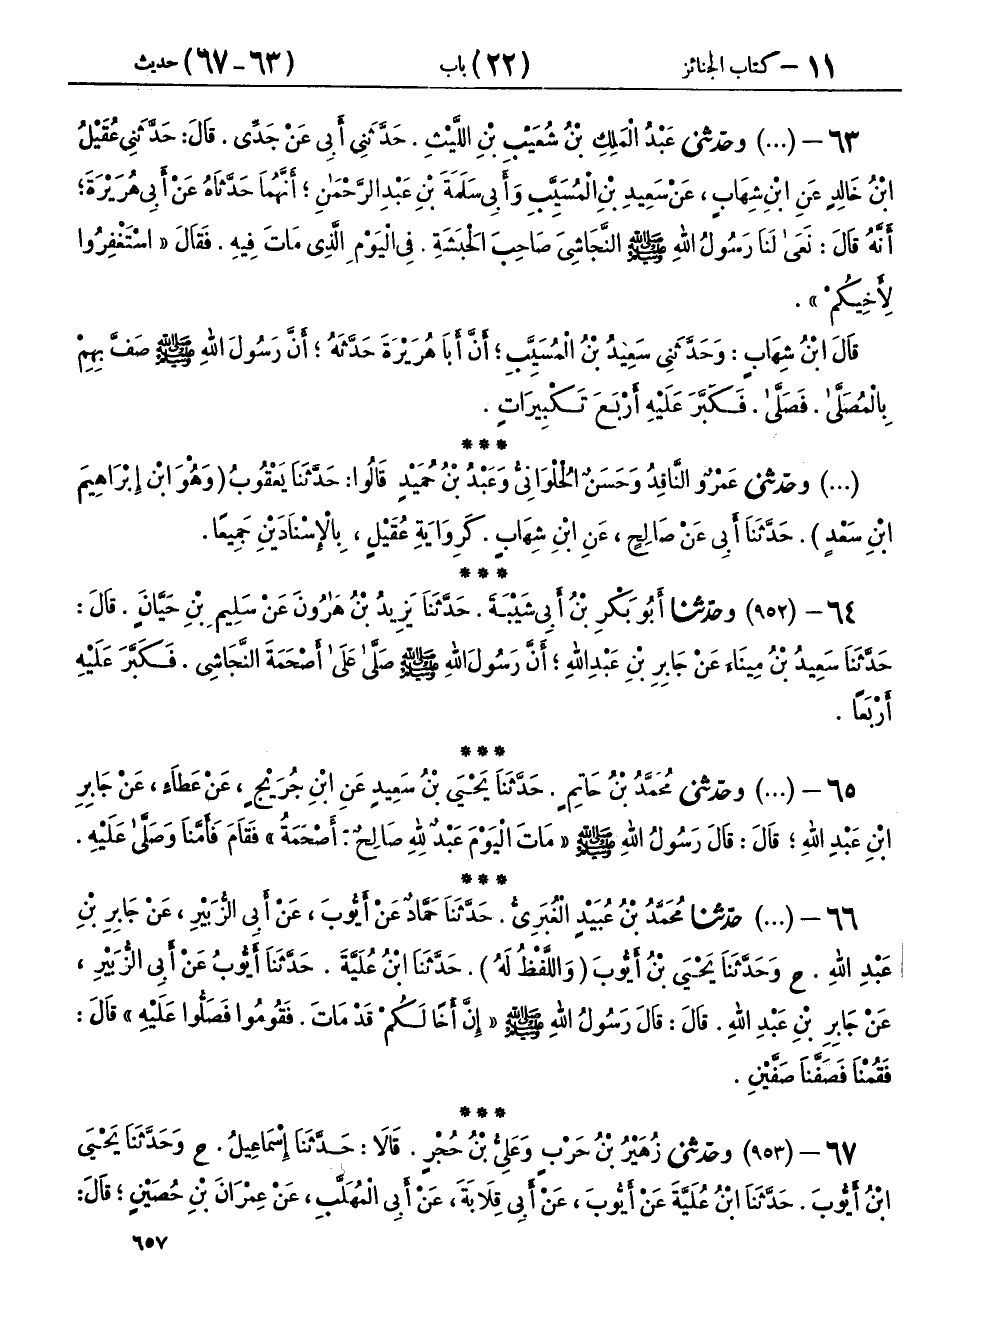 ١١ – كتاب الجنائز (٢٢) باب (٦٣ – ٦٧) حديث
٦٣ – (...) وحدثني عَبْدُ الْمَلِكِ بْنُ شُعَيْبِ بْنِ اللَّيْثِ . حَدَّثَنِي أَبِي عَنْ جَدِّى . قَالَ: حَدَّثَنِي عُقَيْلُ
ابْنُ خَالِدٍ عَنِ ابْنِ شِهَابٍ ، عَنْ سَعِيدِ بْنِ الْمُسَيَّبِ وَأَبِي سَلَمَةَ بْنِ عَبْدِ الرَّحْمَٰنِ ؛ أَنَّهُمَا حَدَّثَاهُ عَنْ أَبِي هُرَيْرَةَ ؛
أَنَّهُ قَالَ : نَعَىٰ لَنَا رَسُولُ اللهِ ﷺ النَّجَاشِيَ صَاحِبَ الْحَبَشَةِ . فِي الْيَوْمِ الَّذِي مَاتَ فِيهِ . فَقَالَ « اسْتَغْفِرُوا
لِأَخِيكُمْ » .
قَالَ ابْنُ شِهَابٍ : وَحَدَّثَنِي سَعِيدُ بْنُ الْمُسَيَّبِ ؛ أَنَّ أَبَا هُرَيْرَةَ حَدَّثَهُ ؛ أَنَّ رَسُولَ اللهِ ﷺ صَفَّ بِهِمْ
بِالْمُصَلَّىٰ . فَصَلَّىٰ . فَكَبَّرَ عَلَيْهِ أَرْبَعَ تَكْبِيرَاتٍ .
***
(...) وحدثني عَمْرٌو النَّاقِدُ وَحَسَنٌ الْحُلْوَانِيُّ وَعَبْدُ بْنُ حُمَيْدٍ قَالُوا: حَدَّثَنَا يَعْقُوبُ (وَهُوَ ابْنِ إِبْرَاهِيمَ
ابْنِ سَعْدٍ ) . حَدَّثَنَا أَبِي عَنْ صَالِحٍ ، عَنِ ابْنِ شِهَابٍ . كَرِوَايَةِ عُقَيْلٍ ، بِالْإِسْنَادَيْنِ جَمِيعًا .
***
٦٤ – (٩٥٢) وحدثنا أَبُو بَكْرِ بْنُ أَبِي شَيْبَةَ . حَدَّثَنَا يَزِيدُ بْنُ هَارُونَ عَنْ سَلِيمِ بْنِ حَيَّانَ . قَالَ :
حَدَّثَنَا سَعِيدُ بْنُ مِينَاءَ عَنْ جَابِرِ بْنِ عَبْدِ اللهِ ؛ أَنَّ رَسُولَ اللهِ ﷺ صَلَّىٰ عَلَىٰ أَصْحَمَةَ النَّجَاشِي . فَكَبَّرَ عَلَيْهِ
أَرْبَعًا .
***
٦٥ – (...) وحدثني مُحَمَّدُ بْنُ حَاتِمٍ . حَدَّثَنَا يَحْيَى بْنُ سَعِيدٍ عَنِ ابْنِ جُرَيْجٍ ، عَنْ عَطَاءٍ ، عَنْ جَابِرِ
ابْنِ عَبْدِ اللهِ ؛ قَالَ : قَالَ رَسُولُ اللهِ ﷺ « مَاتَ الْيَوْمَ عَبْدٌ لِلهِ صَالِحٌ : أَصْحَمَةُ » فَقَامَ فَأَمَّنَا وَصَلَّىٰ عَلَيْهِ .
***
٦٦ – (...) حدثنا مُحَمَّدُ بْنُ عُبَيْدٍ الْغُبَرِيُّ . حَدَّثَنَا حَمَّادٌ عَنْ أَيُّوبَ ، عَنْ أَبِي الزُّبَيْرِ ، عَنْ جَابِرِ بْنِ
عَبْدِ اللهِ . ح وَحَدَّثَنَا يَحْيَى بْنُ أَيُّوبَ (وَاللَّفْظُ لَهُ) . حَدَّثَنَا ابْنُ عُلَيَّةَ . حَدَّثَنَا أَيُّوبُ عَنْ أَبِي الزُّبَيْرِ ،
عَنْ جَابِرِ بْنِ عَبْدِ اللهِ . قَالَ : قَالَ رَسُولُ اللهِ ﷺ « إِنَّ أَخًا لَكُمْ قَدْ مَاتَ . فَقُومُوا فَصَلُّوا عَلَيْهِ » قَالَ :
فَقُمْنَا فَصَفَّنَا صَفَّيْنِ .
***
٦٧ – (٩٥٣) وحدثني زُهَيْرُ بْنُ حَرْبٍ وَعَلِيُّ بْنُ حُجْرٍ . قَالَا : حَدَّثَنَا إِسْمَاعِيلُ . ح وَحَدَّثَنَا يَحْيَى
ابْنُ أَيُّوبَ . حَدَّثَنَا ابْنُ عُلَيَّةَ عَنْ أَيُّوبَ ، عَنْ أَبِي قِلَابَةَ ، عَنْ أَبِي الْمُهَلَّبِ ، عَنْ عِمْرَانَ بْنِ حُصَيْنٍ ؛ قَالَ:
٦٥٧